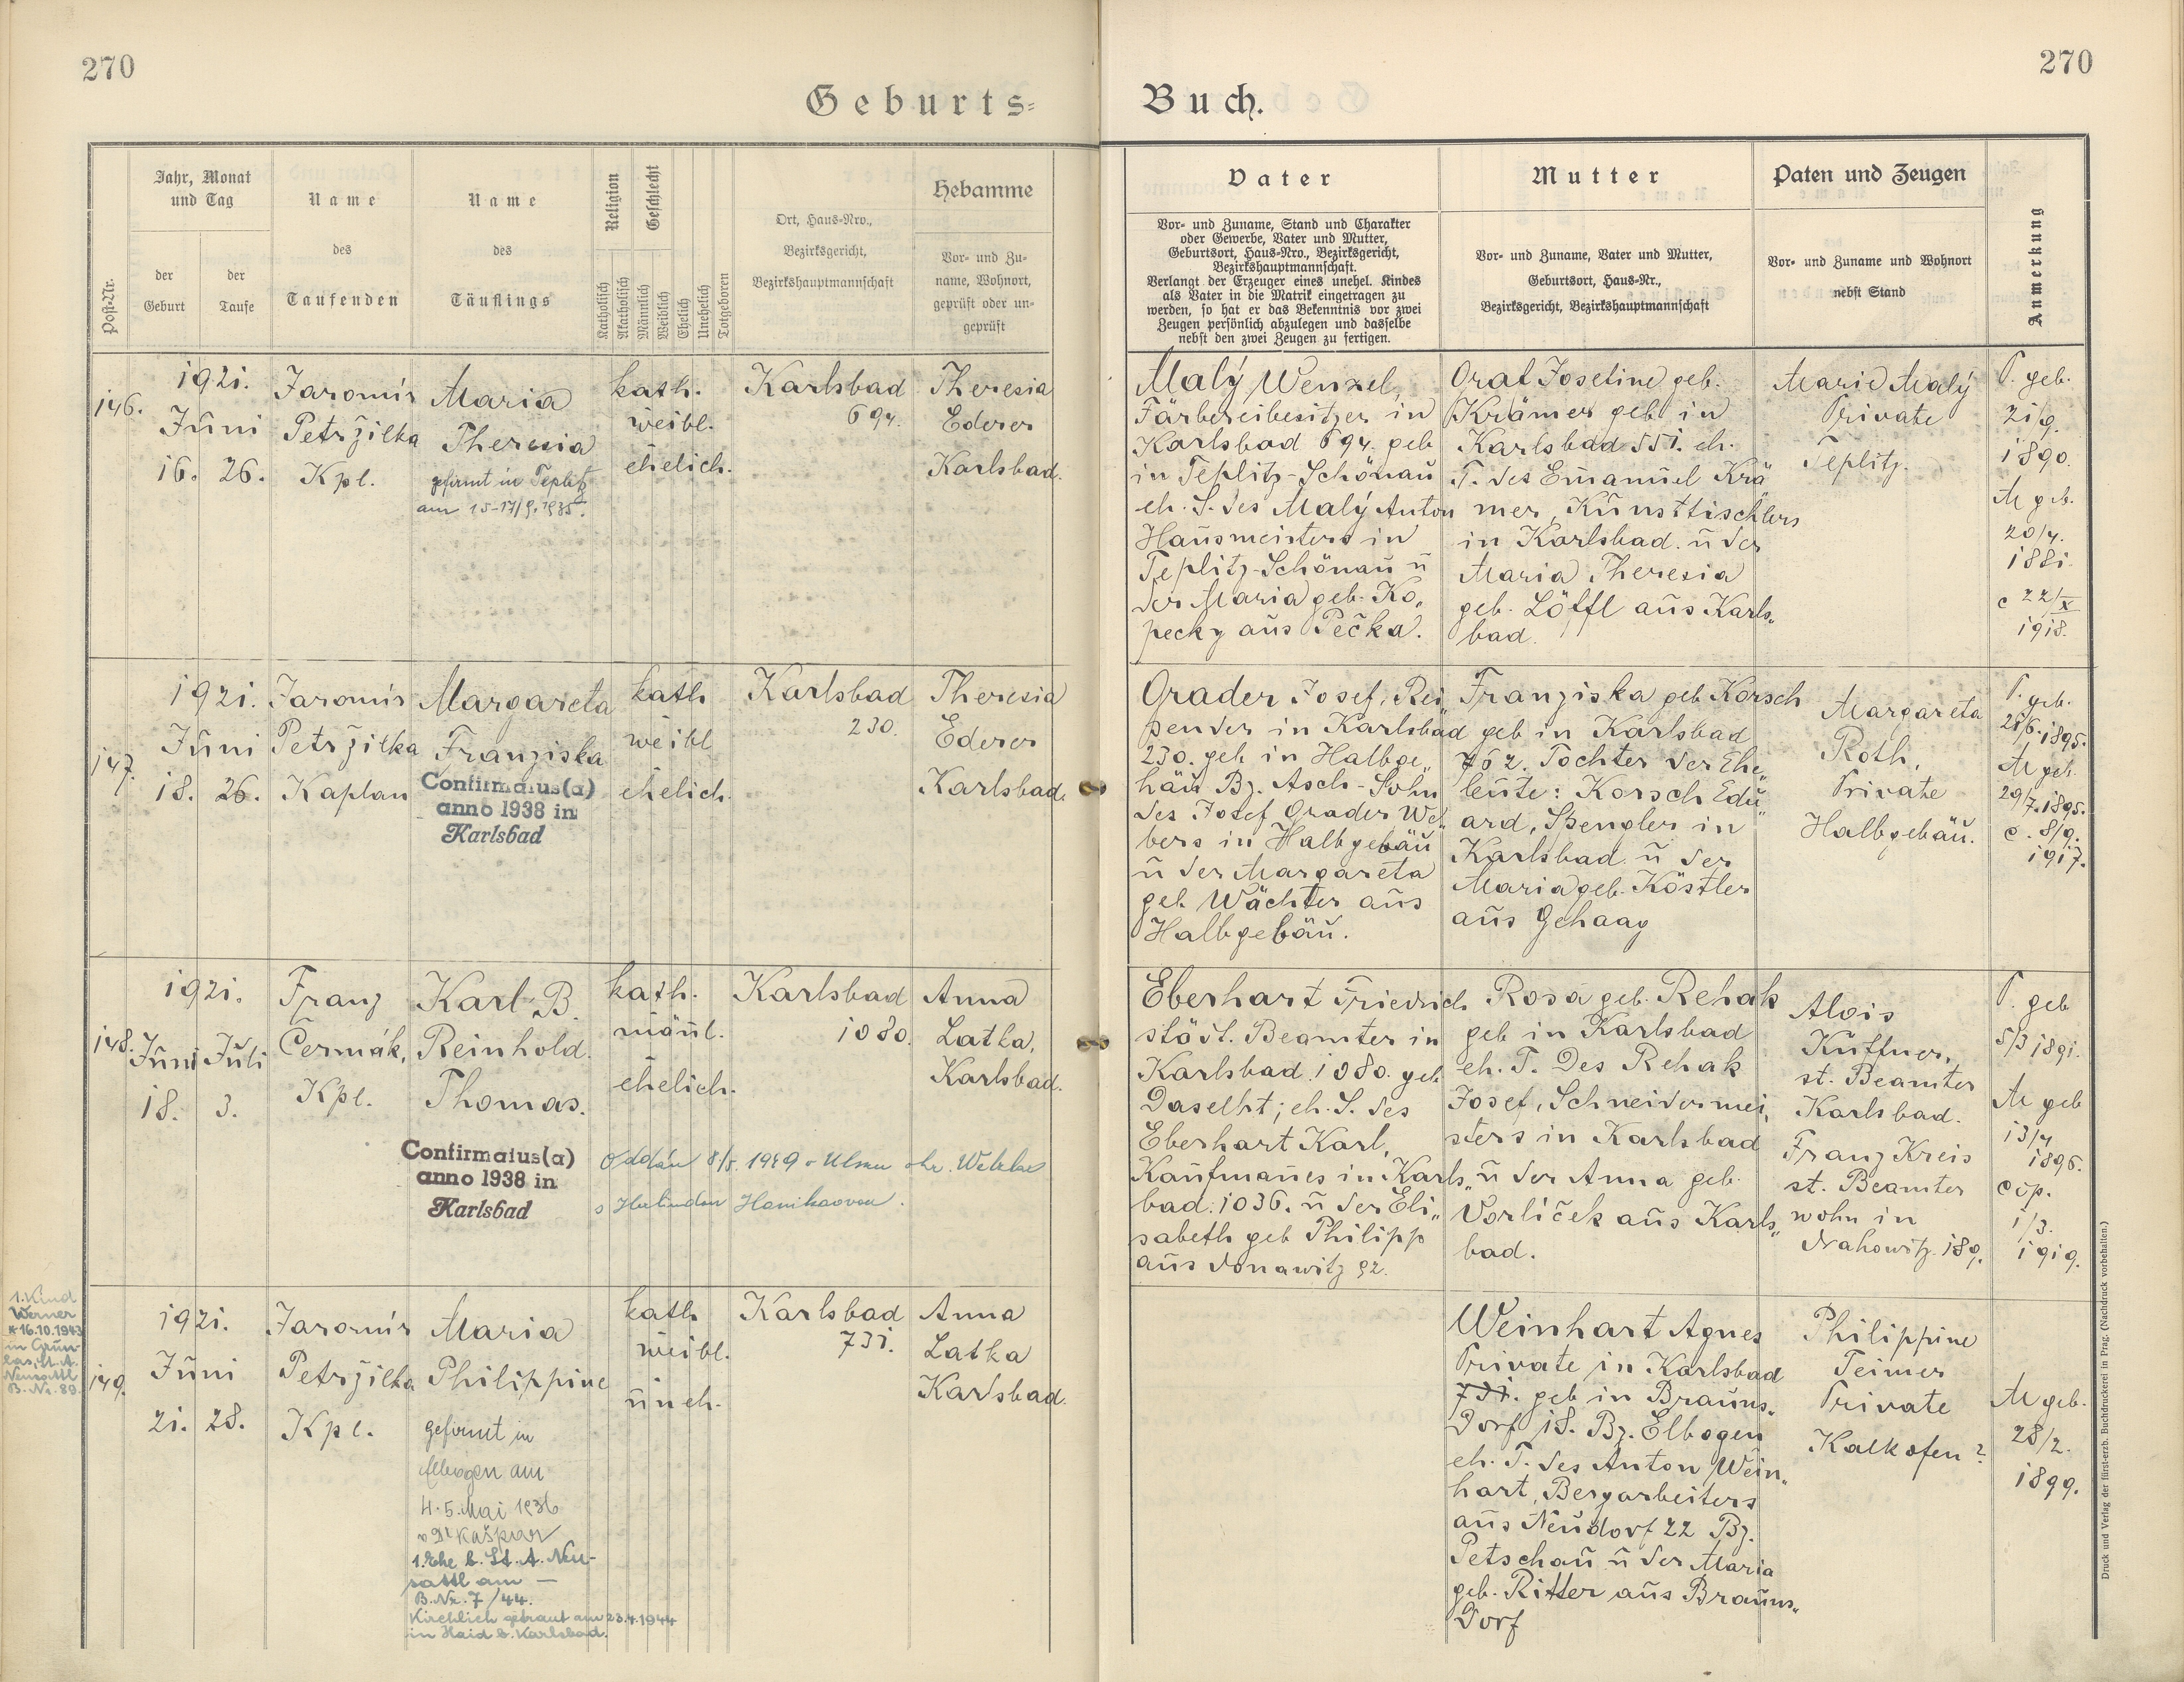 270
270
Geburts=
Buch.
Post-Nr.
Jahr, Monat
und Tag
der
Geburt
der
Taufe
Name
des
Taufenden
Name
des
Täuflings
Religion
Katholisch
Akatholisch
Geschlecht
Männlich
Weiblich
Ehelich
Unehelich
Totgeboren
Ort, Haus=Nro.,
Bezirksgericht,
Bezirkshauptmannschaft
Hebamme
Vor= und Zu=
name, Wohnort,
geprüft oder un=
geprüft
Vater
Vor= und Zuname, Stand und Charakter
oder Gewerbe, Vater und Mutter,
Geburtsort, Haus=Nro., Bezirksgericht,
Bezirkshauptmannschaft.
Verlangt der Erzeuger eines unehel. Kindes
als Vater in die Matrik eingetragen zu
werden, so hat er das Bekenntnis vor zwei
Zeugen persönlich abzulegen und dasselbe
nebst den zwei Zeugen zu fertigen.
Mutter
Vor= und Zuname, Vater und Mutter,
Geburtsort, Haus=Nr.,
Bezirksgericht, Bezirkshauptmannschaft
Paten und Zeugen
Vor= und Zuname und Wohnort
nebst Stand
Anmerkung
146.
1921.
Juni
16. 26.
Jaromír
Petržilka
Kpl.
Maria
Theresia
gefirmt in Teplitz
am 15-17/9. 1935.
kath.
weibl.
ehelich.
Karlsbad
694.
Theresia
Ederer
Karlsbad.
Malý Wenzel,
Färbereibesitzer in
Karlsbad 694. geb
in Teplitz-Schönau
eh. S. des Malý Anton
Hausmeisters in
Teplitz-Schönau u
der Maria geb. Ko„
pecky aus Pečka.
Josefine geb.
Krämer geb in
Karlsbad 551. eh.
T. des Emanuel Krä
mer, Kunsttischlers
in Karlsbad. u der
Maria Theresia
geb. Löffl aus Karls„
bad.
Marie Malý
Private
Teplitz.
V. geb.
21/9.
1890.
M geb.
20/4.
1881.
c 22/X
1918.
147.
1921.
Juni
18. 26.
Jaromír
Petržilka
Kaplan
Margareta
Franziska
Confirmatus(a)
anno 1938 in
Karlsbad
kath
weibl
ehelich.
Karlsbad
230.
Theresia
Ederer
Karlsbad.
Grader Josef, Rei„
sender in Karlsbad
230. geb in Halbge„
bäu Bz. Asch - Sohn
des Josef Grader We„
bers in Halbgebäu
u der Margareta
geb. Wächter aus
Halbgebäu.
Franziska geb Korsch
geb in Karlsbad
762. Tochter der Ehe„
leute: Korsch Edu„
ard, Spengler in
Karlsbad u der
Maria geb. Köstler
aus Gehaag
Margareta
Roth,
Private
Halbgebäu.
V. geb.
M geb.
29/7.1895.
c. 8/9.
1917.
148.
1921.
Juni Juli
18. 3.
Franz
Čermák,
Kpl.
Karl B.
Reinhold.
Thomas.
Confirmatus(a)
anno 1938 in
Karlsbad
kath.
männl.
ehelich.
Oddán 8/5. 1949 v
Karlsbad
1080.
Anna
Latka,
Karlsbad.
Eberhart Friedrich
städt. Beamter in
Karlsbad 1080. geb
daselbst; eh. S. des
Eberhart Karl,
Kaufmanes in Karls„
bad: 1036. u der Eli„
sabeth geb Philipp
aus Donawitz 92.
Rosa geb. Rehak
geb in Karlsbad
eh. T. des Rehak
Josef, Schneidermei„
sters in Karlsbad
u der Anna geb.
Vorliček aus Karls„
bad.
Alois
Kuffner,
st. Beamter
Karlsbad.
Franz Kreis
st. Beamter
wohn in
Drahowitz 189.
V. geb
5/3 1891.
M geb
13/4
1896.
cop.
1/3.
1919.
1. Kind
Werner
*16.10.1943
in Grün-
las, St. A.
Neusattl
B. Nr. 89.
149.
1921.
Juni
21. 28.
Jaromír
Petržilka
Kpl.
Maria
Philippine
gefirmt in
Elbogen am
4.5. Mai 1936
v Dr Kašpar
1. Ehe b. St. A. Neu-
sattl am —
B. Nr. 7/44.
Kirchlich getraut am 23.4.1944
in Haid b. Karlsbad.
kath
weibl.
uneh.
Karlsbad
731.
Anna
Latka
Karlsbad.
Weinhart Agnes
Private in Karlsbad
731. geb in Brauns„
dorf 18. Bz. Elbogen
eh. T. des Anton Wein„
hart, Bergarbeiters
aus Neudorf 22 Bz.
Petschau u der Maria
geb. Ritter aus Brauns„
dorf
Philippine
Teimer
Private
Kalkofen 2
M geb.
28/2.
1899.
Druck und Verlag der fürst-erzb. Buchdruckerei in Prag. (Nachdruck vorbehalten.)